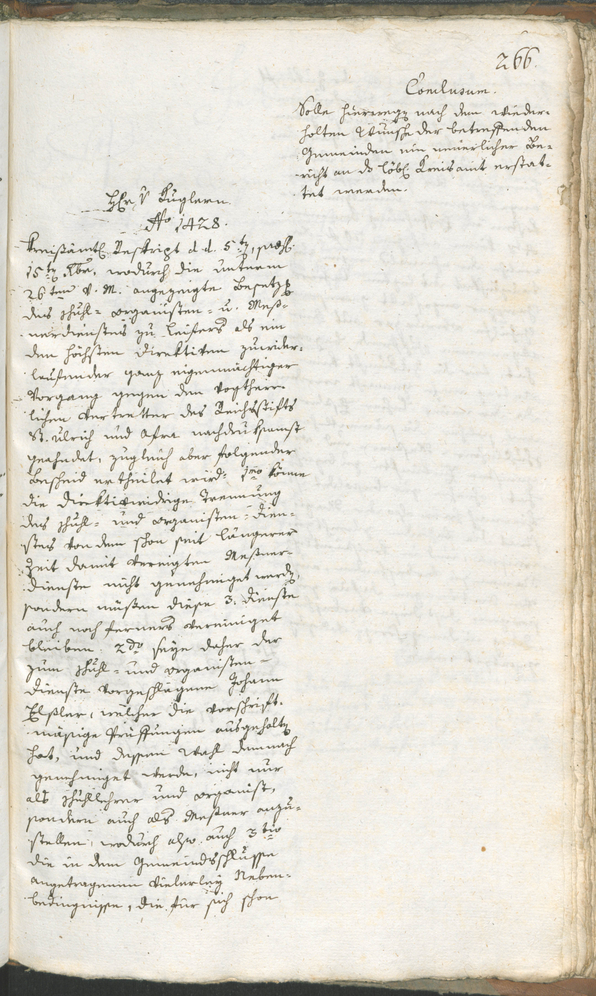 266.
Conclusum.
Solle hierwegen nach dem wieder-
holten Wunsche der betreffenden
Gemeinden ein neuerlicher Be-
richt an d. löbl. Kreisamt erstat-
tet werden.
H. v. Kuglern.
No 1428.
Kreisämtl. Reskript d. d. 5ten, præs.
15ten Xbr., wodurch die unterm
26ten v. M. angezeigte Besetzg
des Schul- Organisten- u. Meß-
nerdienstes zu Leifers als ein
den höchsten Direktiven zuwider-
laufender ganz eigenmächtiger
Vorgang gegen den vogtherr-
lichen Vertretter des Reichsstifts
St. Ulrich und Afra nachdruksamst
geahndet, zugleich aber folgender
Bescheid ertheilet wird: 1mo könne
die direktivwidrige Trennung
des Schul- und Organisten-Dien-
stes von dem schon seit längerer
Zeit damit vereinigten Meßner
dienste nicht genehmiget werden,
sondern müßen diese 3. Dienste
auch noch ferners vereiniget
bleiben. 2do seye daher der
zum Schul- und Organisten-
dienste vorgeschlagene Johann
welcher die vorschrift-
mäßige Prüffungen ausgehalten
hat, und dessen Wahl demnach
genehmiget werde, nicht nur
als Schullehrer und Organist,
sondern auch als Meßner anzu-
stellen, wodurch also auch 3tio
die in dem Gemeindsschlusse
angetragenen vielerley Neben-
bedingnisse, die für sich schon